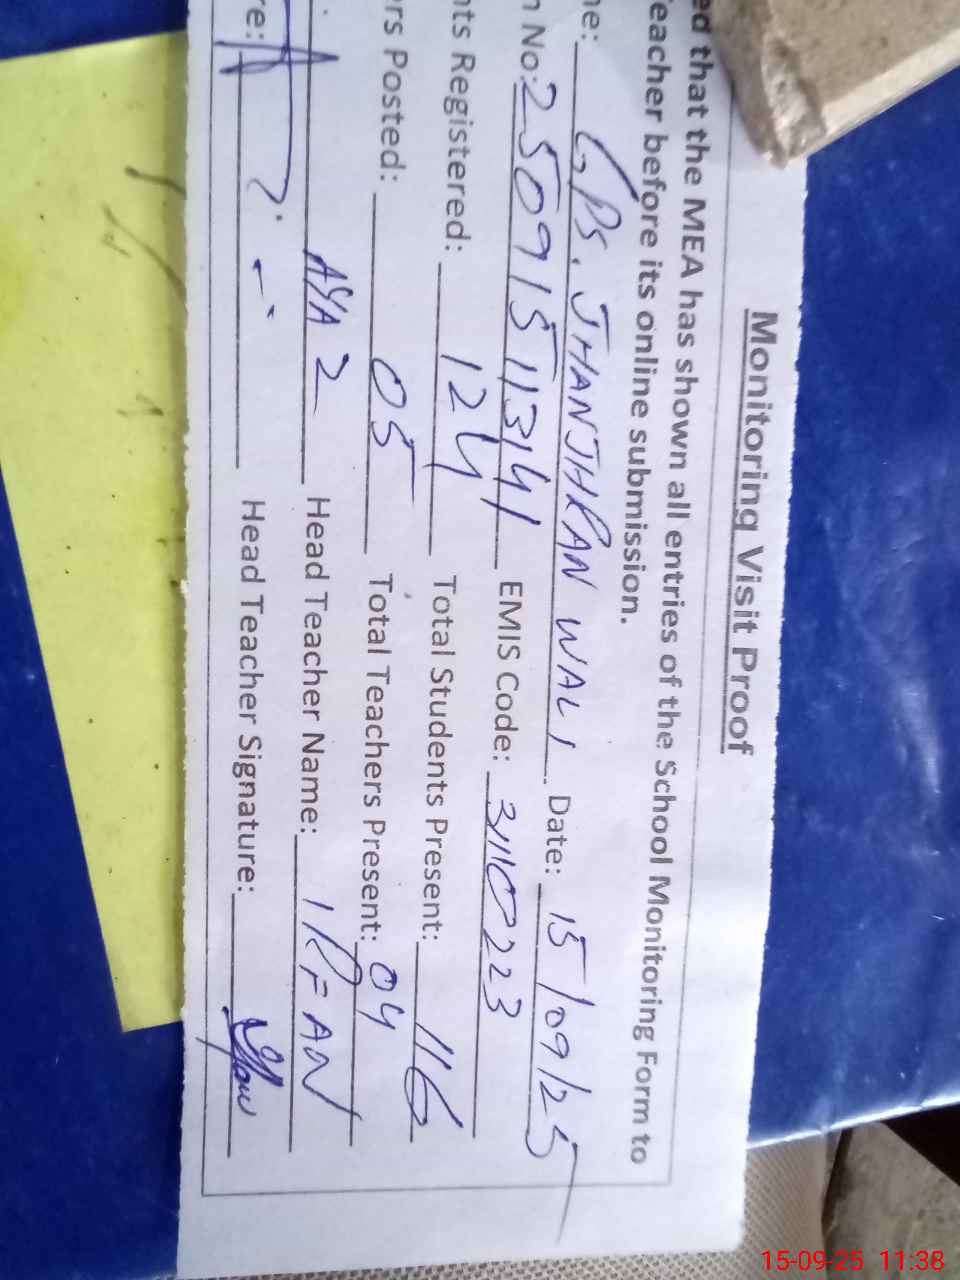 Monitoring Visit Proof
ed that the MEA has shown all entries of the School Monitoring Form to
eacher before its online submission.
ne: GPS. JHANJHRAN WALI Date: 15/09/25
n No: 250915113141 EMIS Code: 31110223
nts Registered: 124 Total Students Present: 116
rs Posted: 05 Total Teachers Present: 04
Head Teacher Name: IRFAN
re: Head Teacher Signature:
15-09-25 11:38